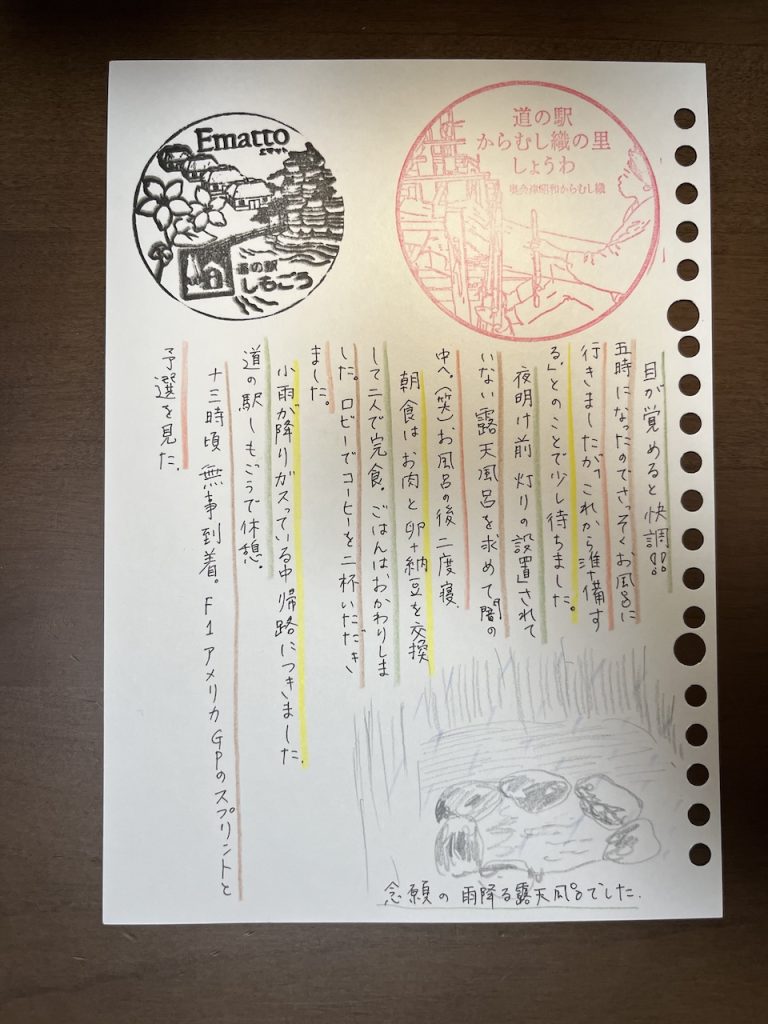 Ematto
えマット
道の駅
しもごう
道の駅
からむし織の里
しょうわ
奥会津昭和からむし織
目が覚めると快調!!
五時になったのでさっそくお風呂に
行きましたが「これから準備す
る」とのことで少し待ちました。
夜明け前 灯りの設置されて
いない露天風呂を求めて闇の
中へ。(笑)お風呂の後 二度寝。
朝食はお肉と卵+納豆を交換
して二人で完食。ごはんはおかわりしま
した。ロビーでコーヒーを二杯いただき
ました。
小雨が降りガスっている中 帰路につきました。
道の駅しもごうで休憩。
十三時頃 無事到着。F1アメリカGPのスプリントと
予選を見た。
念願の 雨降る露天風呂でした。